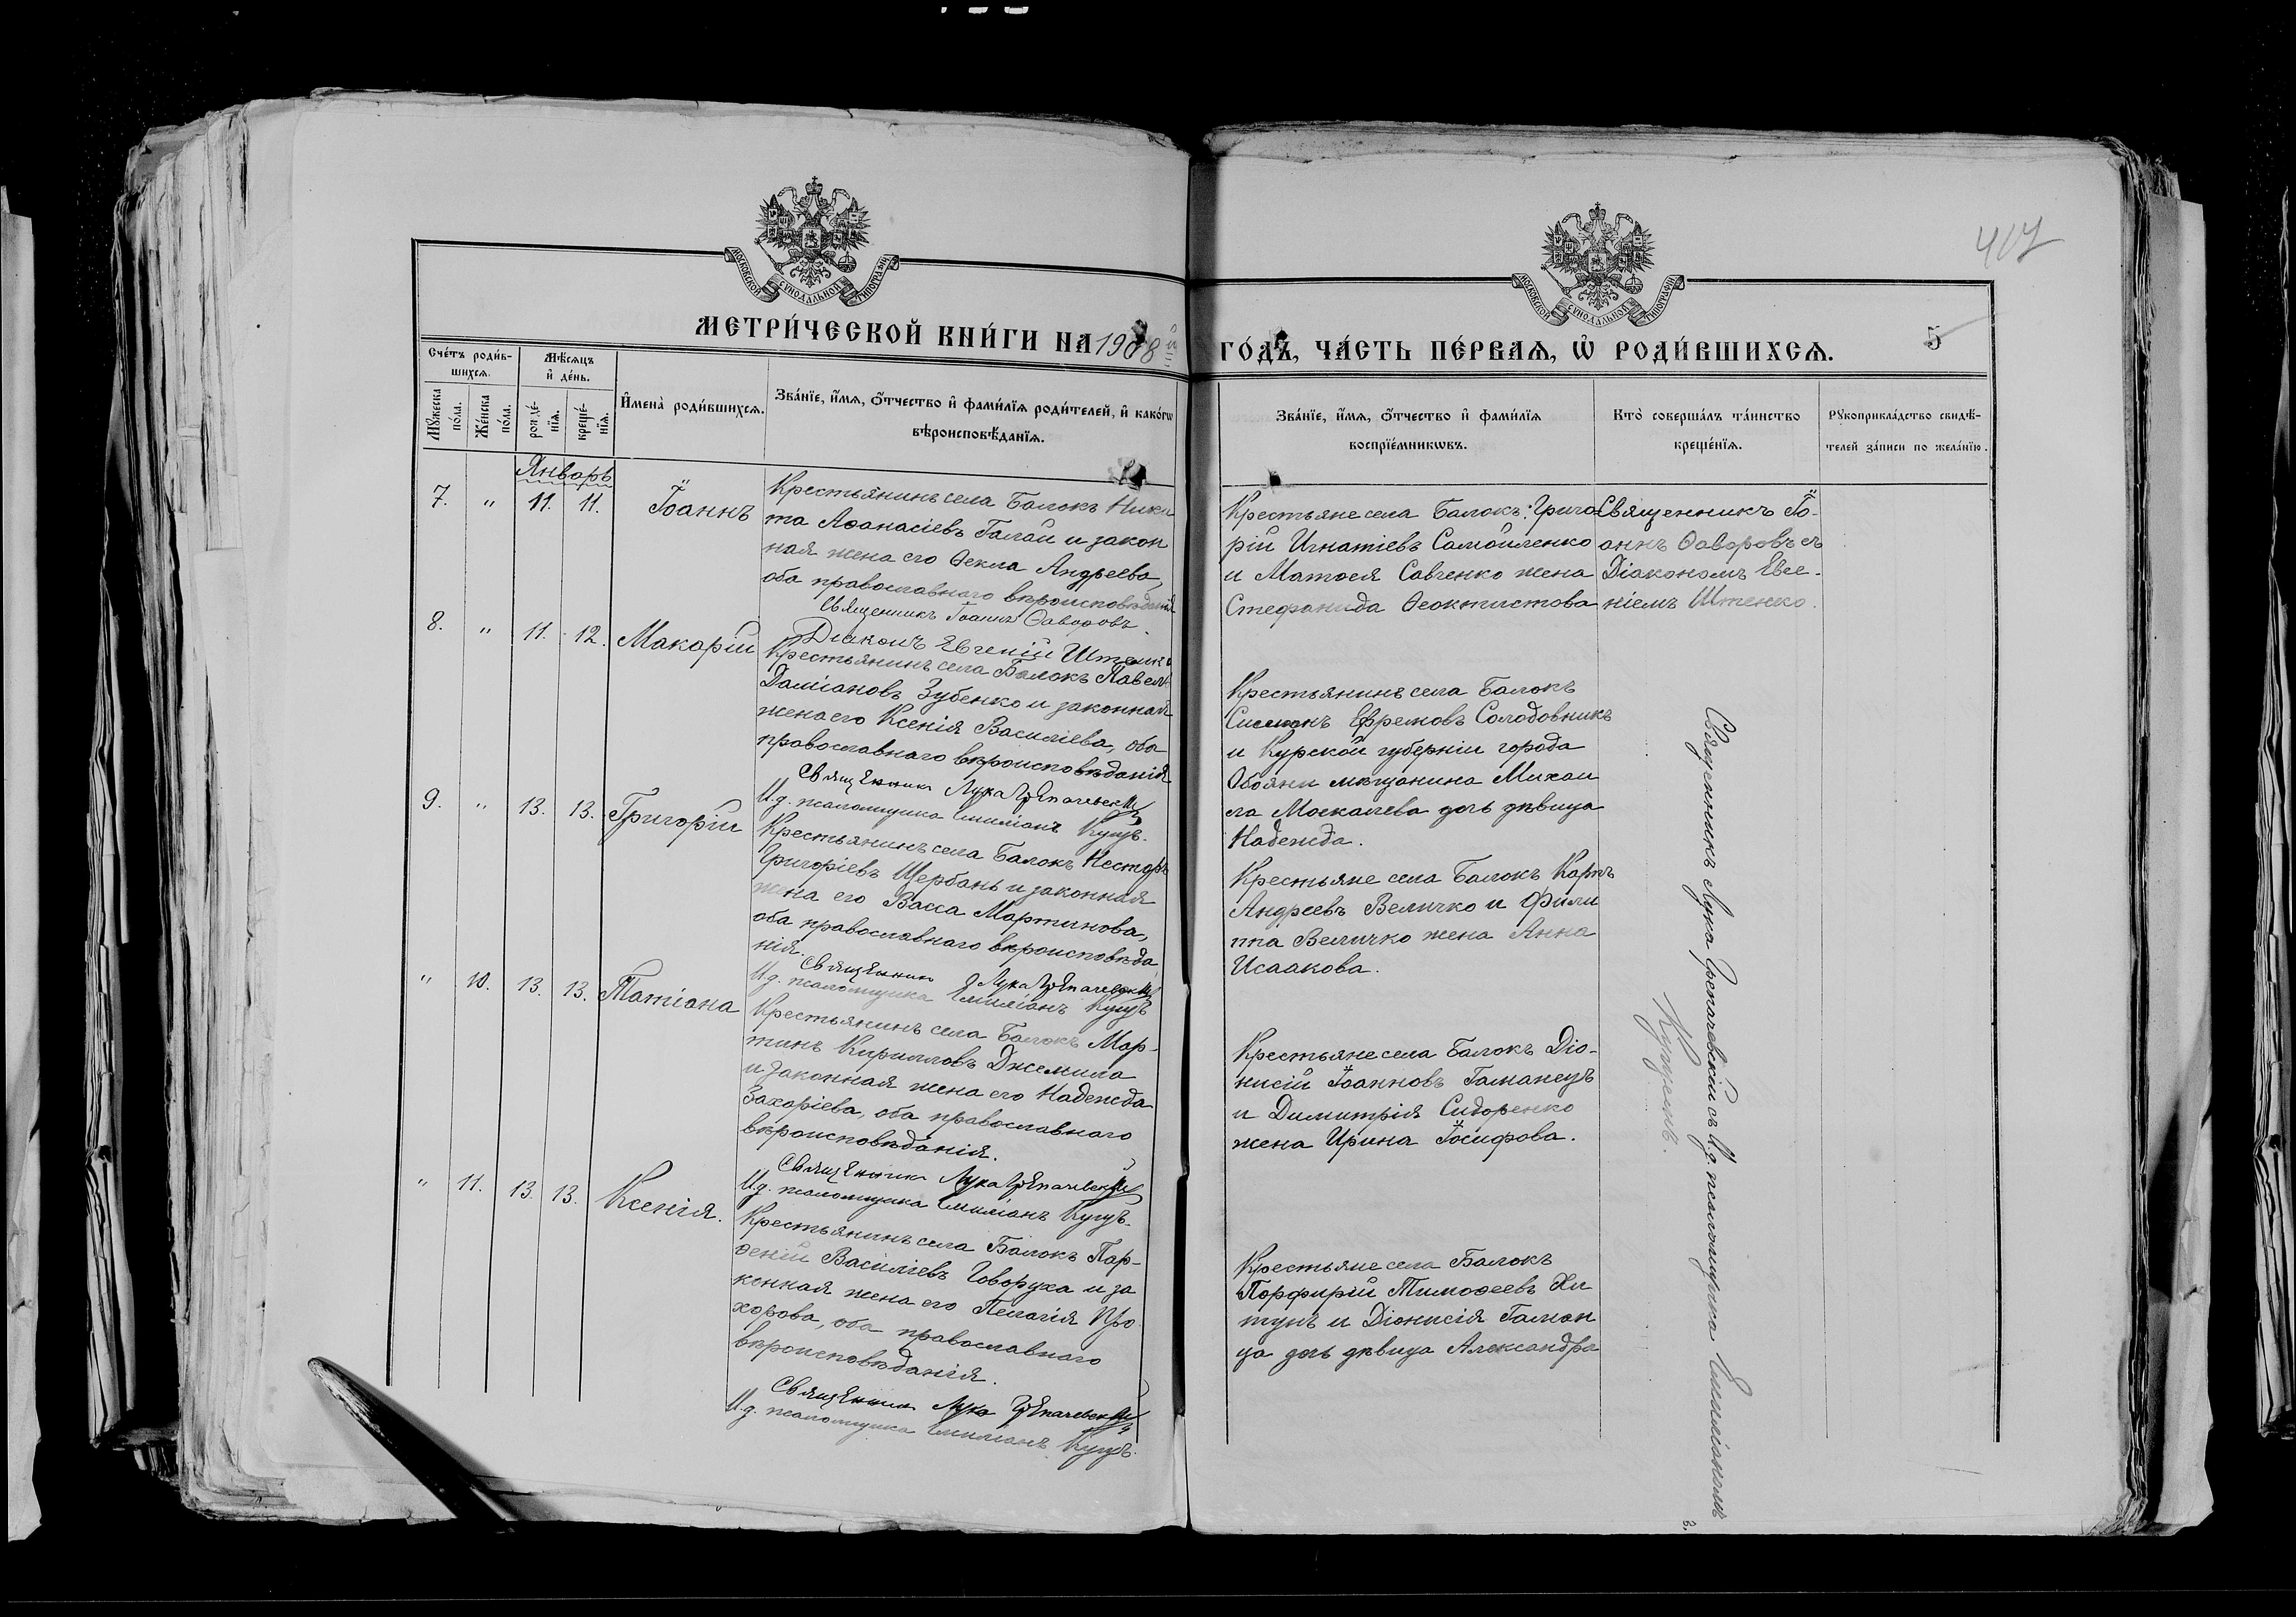 407
МОСКОВСКОЙ СѴНОДАЛЬНОЙ ТИПОГРАФІИ
МОСКОВСКОЙ СѴНОДАЛЬНОЙ ТИПОГРАФІИ
МЕТРИ́ЧЕСКОЙ КНИ́ГИ НА 1908
ГО́ДЪ, ЧА́СТЬ ПЕ́РВАѦ, Ѡ҆ РОДИ́ВШИХСѦ.
5
Сче́тъ роди́в-
шихсѧ.
Мѣ́сѧцъ
и҆ де́нь.
Мꙋ́жеска
по́ла.
Же́нска
по́ла.
рожде́-
нїѧ.
креще́-
нїѧ.
И҆мена̀ роди́вшихсѧ.
Зва́нїе, и҆́мѧ, ѻ҆́тчество и҆ фами́лїѧ роди́телей, и҆ како́гѡ
вѣроисповѣ́данїѧ.
Зва́нїе, и҆́мѧ, ѻ҆́тчество и҆ фами́лїѧ
воспрїе́мникѡвъ.
Кто̀ соверша́лъ та́инство
креще́нїѧ.
Рꙋкоприкла́дство свидѣ́-
телей за́писи по жела́нїю.
Январь
7. " 11. 11. Іоаннъ
Крестьянинъ села Балокъ Ники
та Аѳанасіевъ Галай и закон
ная жена его Ѳекла Андреева,
оба православнаго вѣроисповѣданія
Священникъ Іоаннъ Ѳаворовъ
Діаконъ Евгеній Штенко
Крестьяне села Балокъ: Григо
рій Игнатіевъ Самойленко
и Матѳея Савченко жена
Стефанида Ѳеоктистова
Священникъ Іо-
аннъ Ѳаворовъ съ
Діакономъ Евге-
ніемъ Штенко.
8. " 11. 12. Макарій
Крестьянинъ села Балокъ Павелъ
Даміановъ Зубенко и законная
жена его Ксенія Василіева, оба
православнаго вѣроисповѣданія
Священникъ Лука Грепачевскій
И.д. псаломщика Емиліанъ Купцъ.
Крестьянинъ села Балокъ
Симеонъ Ефремовъ Солодовникъ
и Курской губерніи города
Обояни мѣщанина Михаи
ла Москалева дочь дѣвица
Надежда.
9. " 13. 13. Григорій
Крестьянинъ села Балокъ Несторъ
Григоріевъ Щербань и законная
жена его Васса Мартинова,
оба православнаго вѣроисповѣда
нія.
Священникъ Лука Грепачевскій
И.д. псаломщика Емиліанъ Купцъ
Крестьяне села Балокъ Карпъ
Андреевъ Величко и Фили
ппа Величко жена Анна
Исаакова.
" 10. 13. 13. Татіана
Крестьянинъ села Балокъ Мар-
тинъ Кирилловъ Джемила
и законная жена его Надежда
Захаріева, оба православнаго
вѣроисповѣданія.
Священникъ Лука Грепачевскій
И.д. псаломщика Емиліанъ Купцъ.
Крестьяне села Балокъ Діо-
нисій Іоанновъ Гаманецъ
и Димитрія Сидоренко
жена Ирина Іосифова.
" 11. 13. 13. Ксенія.
Крестьянинъ села Балокъ Пар-
ѳеній Василіевъ Говоруха и за
конная жена его Пелагія Про
хорова, оба православнаго
вѣроисповѣданія.
Священникъ Лука Грепачевскій
И.д. псаломщика Емиліанъ Купцъ.
Крестьяне села Балокъ
Порфирій Тимоѳеевъ Хи
тунъ и Діонисія Гаман
ца дочь дѣвица Александра
Священникъ Лука Грепачевскій съ И.д. псаломщика Емиліаномъ
Купцемъ.